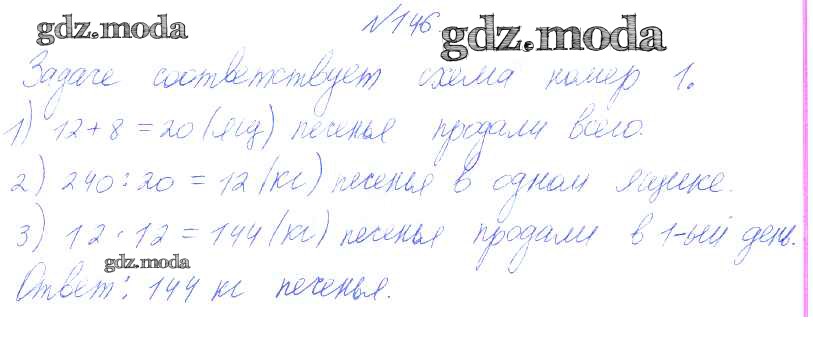 gdz.moda
№146
gdz.moda
Задаче соответствует схема номер 1.
1) 12 + 8 = 20 (ящ) печенья продали всего.
2) 240 : 20 = 12 (кг) печенья в одном ящике.
3) 12 · 12 = 144 (кг) печенья продали в 1-ый день.
gdz.moda
Ответ: 144 кг печенья.